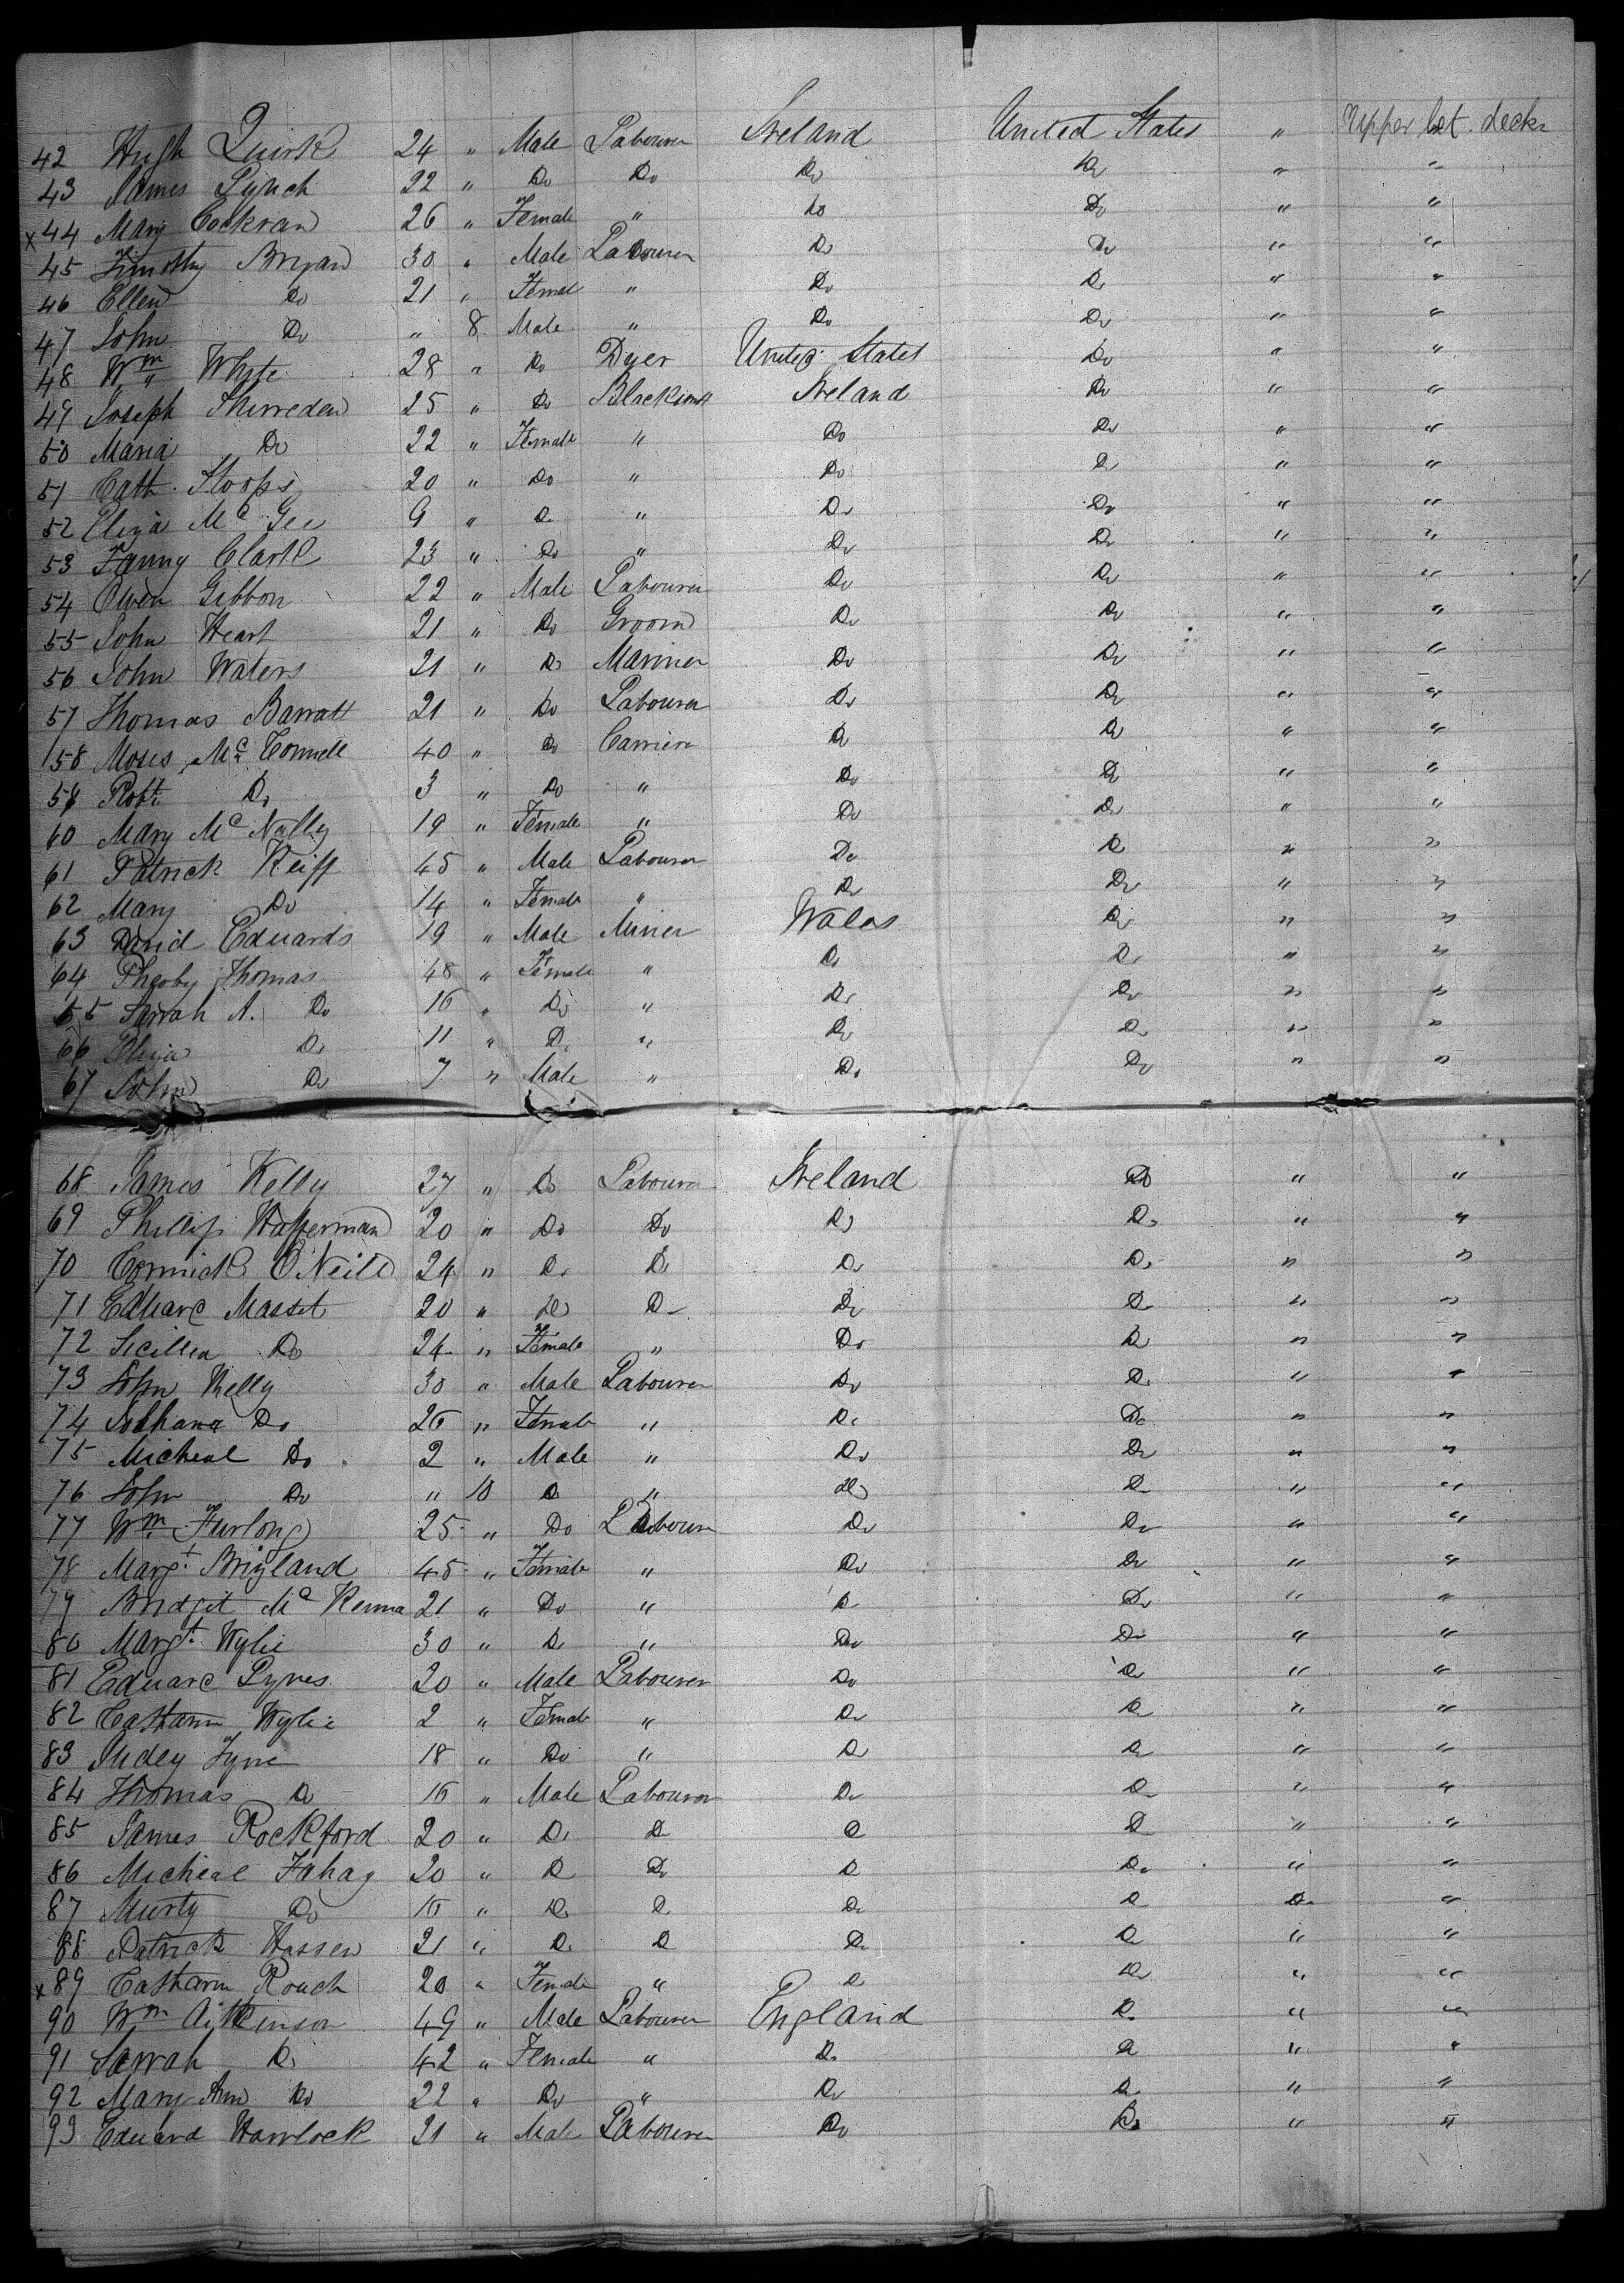 42 Hugh Quirk 24 " Male Labourer Ireland United States " Upper bet. decks
43 James Lynch 22 " Do Do Do Do " "
x 44 Mary Cockran 26 " Female " Do Do " "
45 Timothy Bryan 30 " Male Labourer Do Do " "
46 Ellen Do 21 " Femal " Do Do " "
47 John Do " 8 Male " Do Do " "
48 Wm Whyte 28 " Do Dyer United States Do " "
49 Joseph 25 " Do Blacksmith Ireland Do " "
50 Maria Do 22 " Female " Do Do " "
51 Cath. Stoops 20 " Do " Do Do " "
52 Eliza Mc Gee 9 " Do " Do Do " "
53 Fanny Clark 23 " Do " Do Do " "
54 Owen Gibbon 22 " Male Labourer Do Do " "
55 John Heart 21 " Do Groom Do Do " "
56 John Waters 21 " Do Mariner Do Do " "
57 Thomas Barratt 21 " Do Labourer Do Do " "
58 Moses Mc Connell 40 " Do Carrier Do Do " "
59 Robt. Do 3 " Do " Do Do " "
60 Mary Mc Nally 19 " Female " Do Do " "
61 Patrick Keiff 45 " Male Labourer Do Do " "
62 Mary Do 14 " Female " Do Do " "
63 David Edwards 19 " Male Miner Wales Do " "
64 Pheoby Thomas 48 " Female " Do Do " "
65 Sarrah A. Do 16 " Do " Do Do " "
66 Eliza Do 11 " Do " Do Do " "
67 John Do 7 " Male " Do Do " "
68 James Kelly 27 " Do Labourer Ireland Do " "
69 Phillip 20 " Do Do Do Do " "
70 Cormick O'Neill 24 " Do Do Do Do " "
71 Edward Masset 20 " Do Do Do Do " "
72 Secillia Do 24 " Female " Do Do " "
73 John Kelly 30 " Male Labourer Do Do " "
74 Johhana Do 26 " Female " Do Do " "
75 Micheal Do 2 " Male " Do Do " "
76 John Do " 10 Do " Do Do " "
77 Wm Furlong 25 " Do Labourer Do Do " "
78 Margt. Brigland 45 " Female " Do Do " "
79 Bridget Mc Kenna 21 " Do " Do Do " "
80 Margt. Wylie 30 " Do " Do Do " "
81 Edward Pynes 20 " Male Labourer Do Do " "
82 Cathann Wylie 2 " Female " Do Do " "
83 Judey Fyne 18 " Do " Do Do " "
84 Thomas Do 16 " Male Labourer Do Do " "
85 James Rockford 20 " Do Do Do Do " "
86 Micheal Fahay 20 " Do Do Do Do " "
87 Murty Do 16 " Do Do Do Do " "
88 Patrick Hassen 21 " Do Do Do Do " "
x 89 Cathann Rouch 20 " Female " Do Do " "
90 Wm Aitkinson 49 " Male Labourer England Do " "
91 Sarrah Do 42 " Female " Do Do " "
92 Mary Ann Do 22 " Do " Do Do " "
93 Edward Havelock 21 " Male Labourer Do Do " "